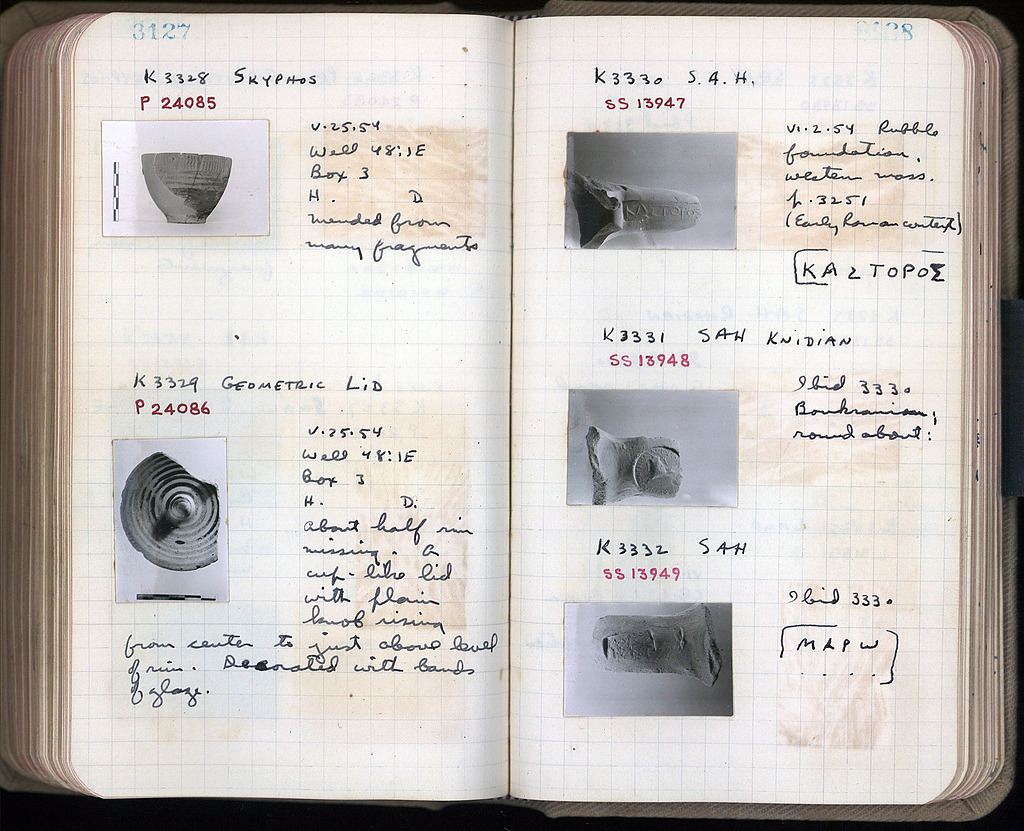 3127
K 3328 SKYPHOS
P 24085
V.25.54
Well 48:1E
Box 3
H. D
mended from
many fragments
K 3329 GEOMETRIC LID
P 24086
V.25.54
Well 48:1E
Box 3
H. D:
About half rim
missing. A
cup-like lid
with plain
knob rising
from center to just above level
of rim. Decorated with bands
of glaze.
3128
K3330 S.A.H.
SS 13947
VI.2.54 Rubble
foundation,
western mass.
p. 3251
(Early Roman context)
ΚΑΣΤΟΡΟΣ
ΚΑΣΤΟΡΟΣ
K3331 SAH KNIDIAN
SS 13948
Ibid 3330
Boukranion;
round about:
K3332 SAH
SS 13949
Ibid 3330
[ΜΑΡω
. . . . .]